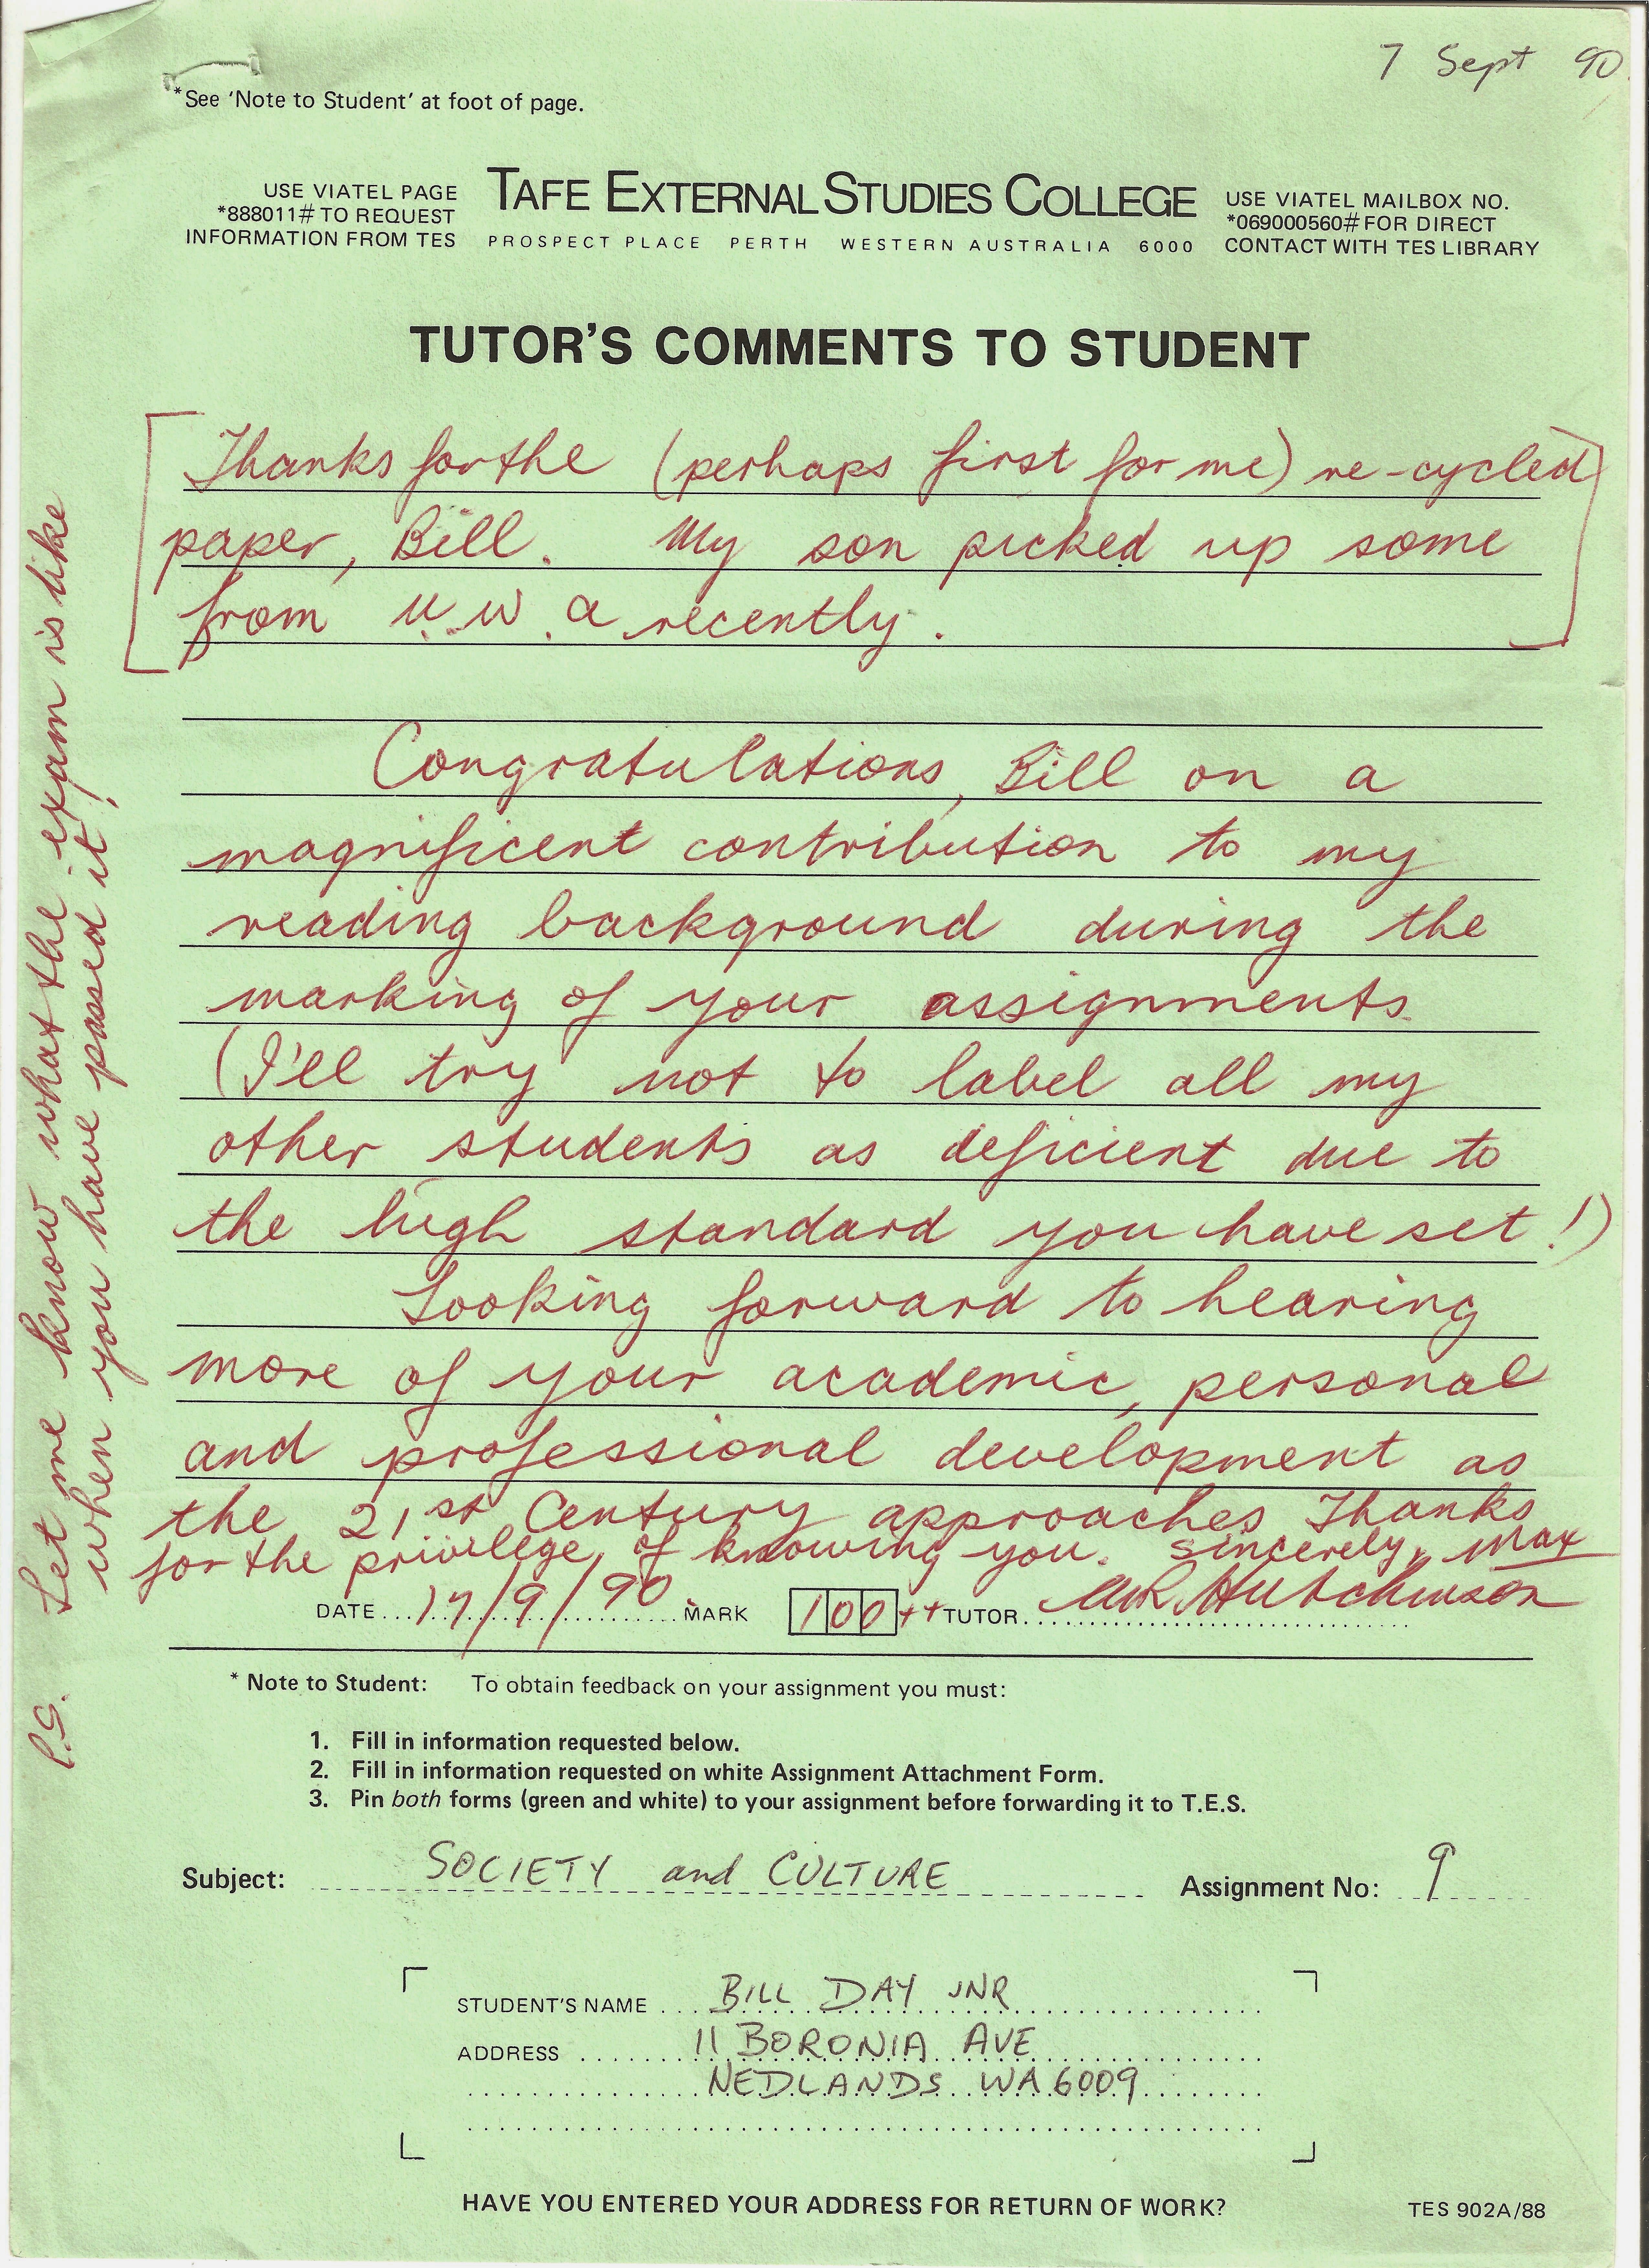 7 Sept 90
*See 'Note to Student' at foot of page.
USE VIATEL PAGE
*888011# TO REQUEST
INFORMATION FROM TES
TAFE EXTERNAL STUDIES COLLEGE
PROSPECT PLACE PERTH WESTERN AUSTRALIA 6000
USE VIATEL MAILBOX NO.
*069000560# FOR DIRECT
CONTACT WITH TES LIBRARY
TUTOR'S COMMENTS TO STUDENT
Thanks for the (perhaps first for me) re-cycled
paper, Bill. My son picked up some
from U.W.A recently.
Congratulations, Bill on a
magnificent contribution to my
reading background during the
marking of your assignments.
(I'll try not to label all my
other students as deficient due to
the high standard you have set!)
Looking forward to hearing
more of your academic, personal
and professional development as
the 21st Century approaches Thanks
for the privilege of knowing you. Sincerely, Max
DATE 17/9/90 MARK 100++ TUTOR MR Hutchinson
P.S. Let me know what the exam is like
when you have passed it!
* Note to Student: To obtain feedback on your assignment you must:
1. Fill in information requested below.
2. Fill in information requested on white Assignment Attachment Form.
3. Pin both forms (green and white) to your assignment before forwarding it to T.E.S.
Subject: SOCIETY and CULTURE Assignment No: 9
STUDENT'S NAME BILL DAY JNR
ADDRESS 11 BORONIA AVE
NEDLANDS WA 6009
HAVE YOU ENTERED YOUR ADDRESS FOR RETURN OF WORK?
TES 902A/88